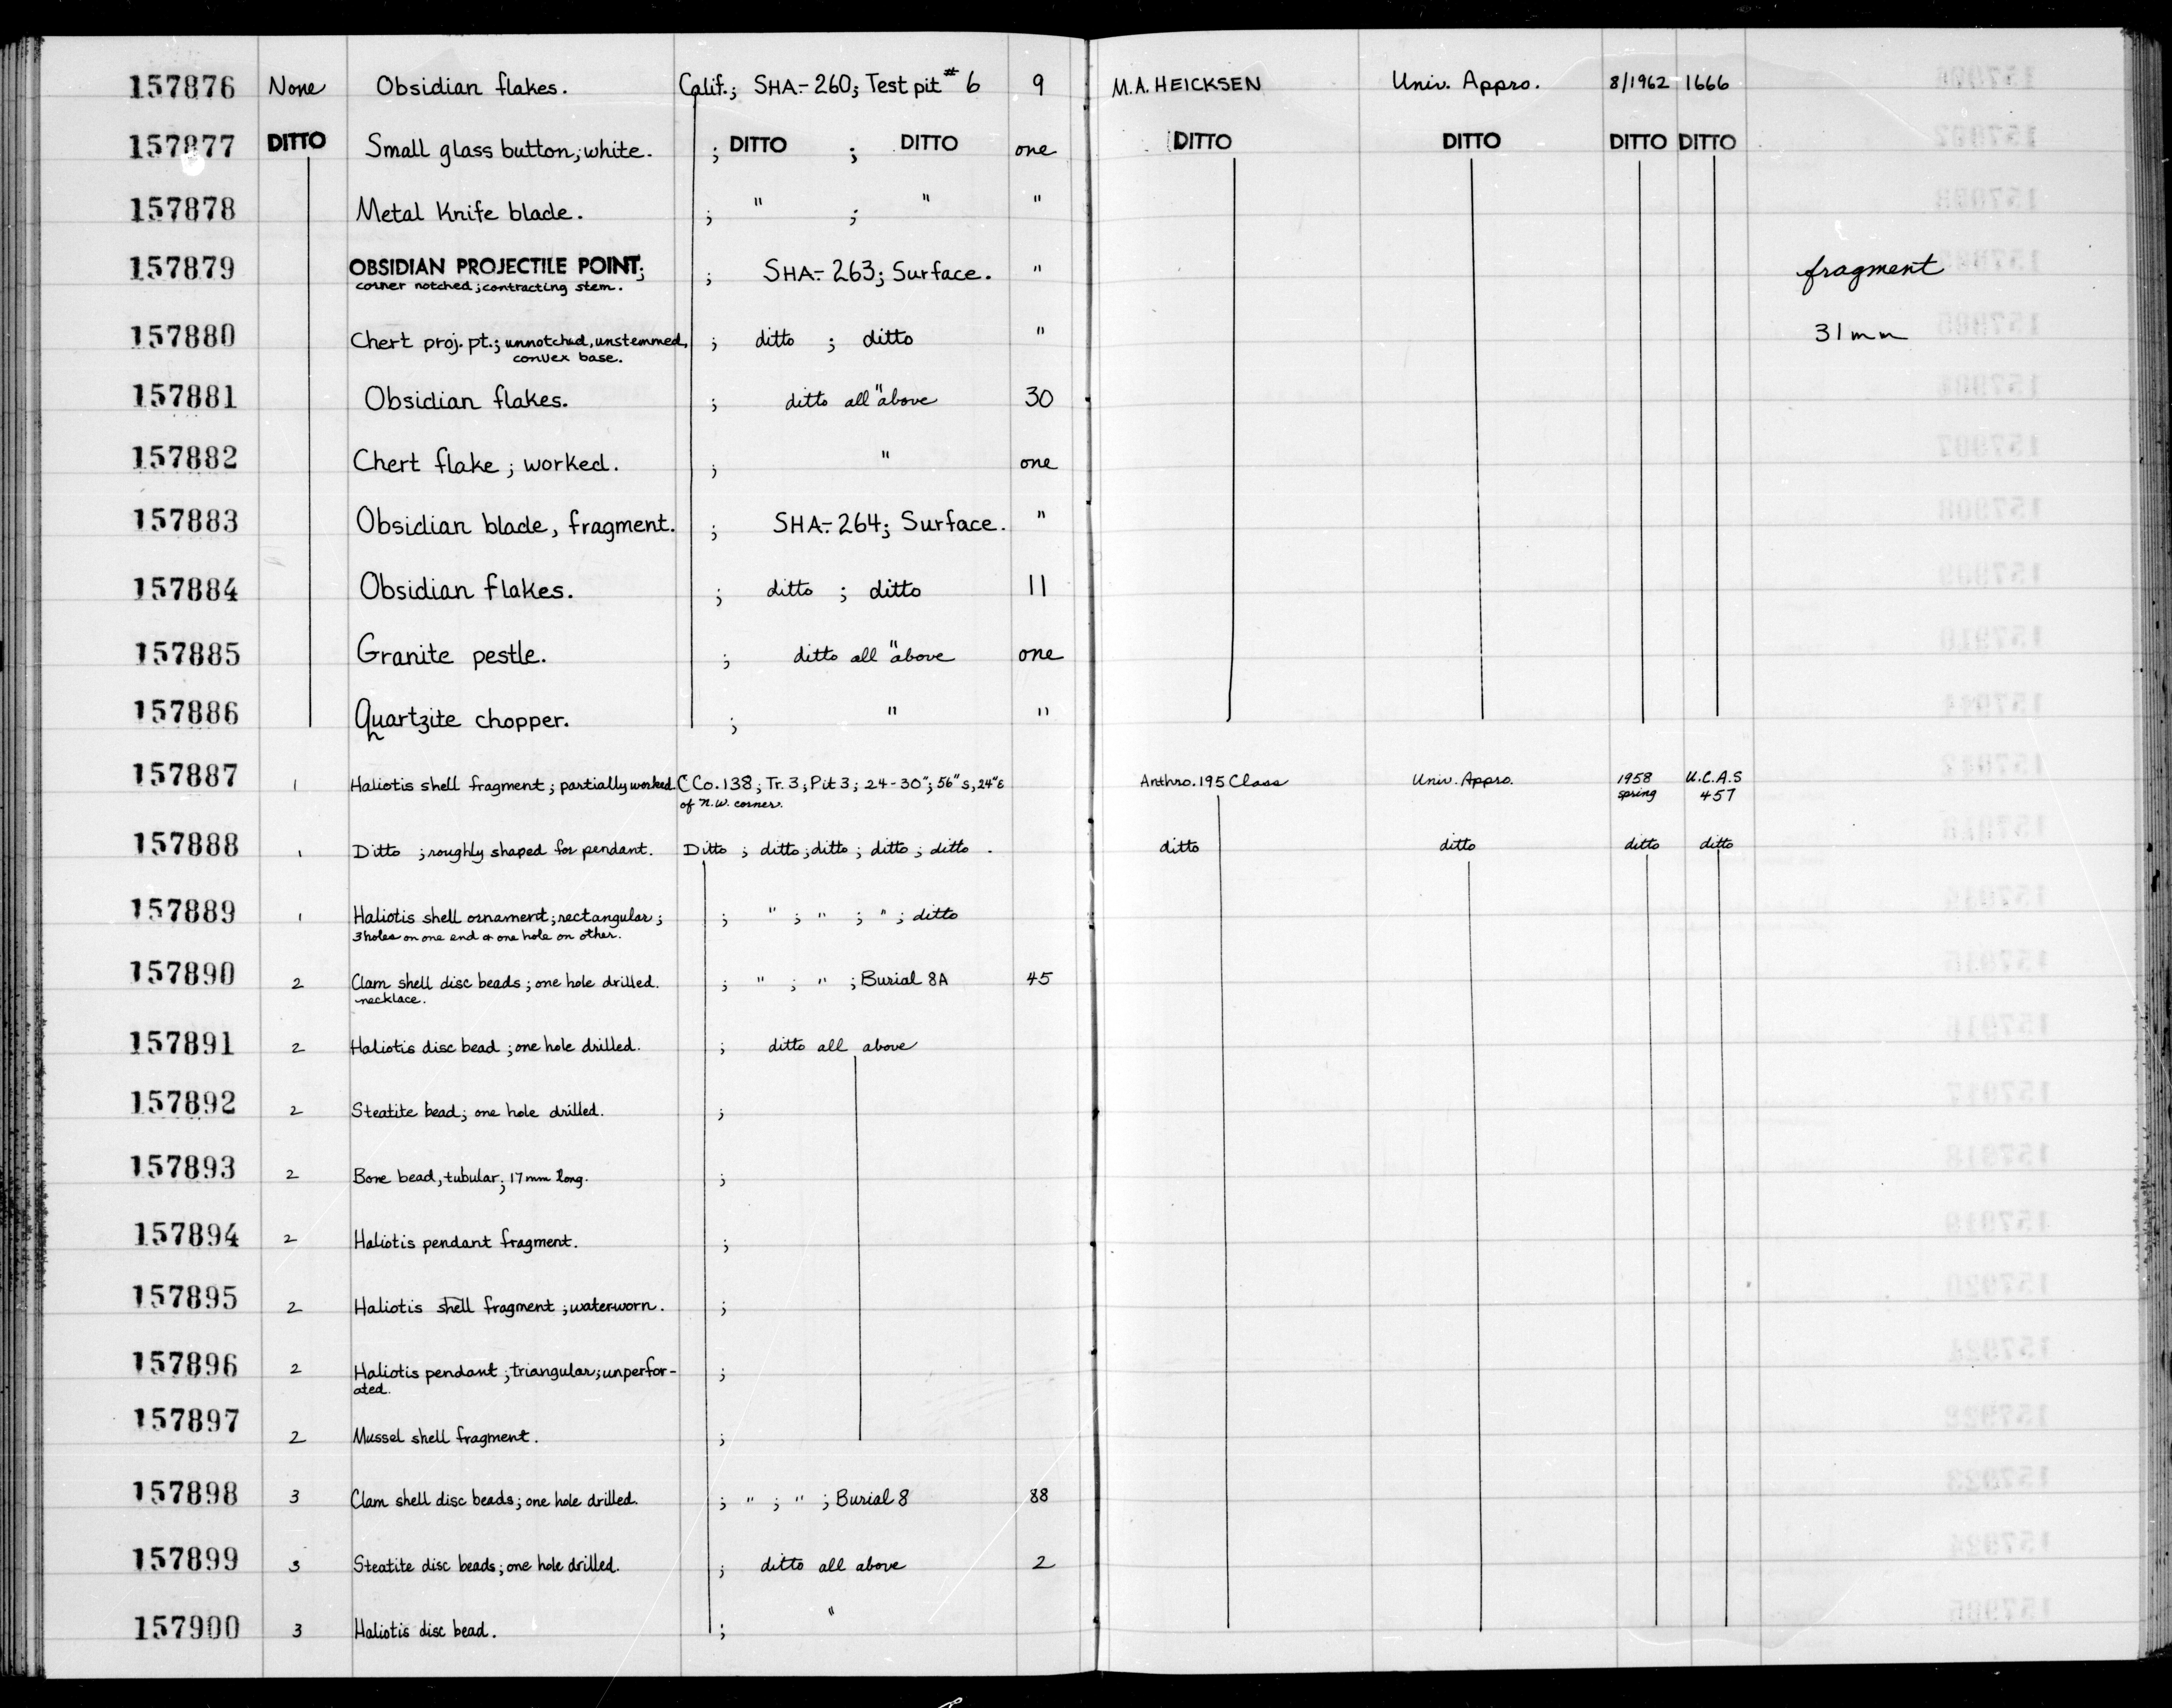 157876 None Obsidian flakes. Calif.; SHA-260; Test pit #6 9 M.A. HEICKSEN Univ. Appro. 8/1962 1666
157877 DITTO Small glass button; white. ; DITTO ; DITTO one DITTO DITTO DITTO DITTO
157878 Metal Knife blade. ; " ; " "
157879 OBSIDIAN PROJECTILE POINT; ; SHA-263; Surface. " fragment
corner notched; contracting stem.
157880 Chert proj. pt.; unnotched, unstemmed, ; ditto ; ditto " 31mm
convex base.
157881 Obsidian flakes. ; ditto all "above 30
157882 Chert flake; worked. ; " one
157883 Obsidian blade, fragment. ; SHA-264; Surface. "
157884 Obsidian flakes. ; ditto ; ditto 11
157885 Granite pestle. ; ditto all "above one
157886 Quartzite chopper. ; " "
157887 1 Haliotis shell fragment; partially worked. CCo.138; Tr.3; Pit 3; 24-30"; 56"s, 24"E Anthro. 195 Class Univ. Appro. 1958 U.C.A.S
of N.W. corner. spring 457
157888 1 Ditto ; roughly shaped for pendant. Ditto ; ditto; ditto ; ditto ; ditto . ditto ditto ditto ditto
157889 1 Haliotis shell ornament; rectangular; ; " ; " ; " ; ditto
3 holes on one end & one hole on other.
157890 2 Clam shell disc beads; one hole drilled. ; " ; " ; Burial 8A 45
necklace.
157891 2 Haliotis disc bead; one hole drilled. ; ditto all above
157892 2 Steatite bead; one hole drilled. ;
157893 2 Bone bead, tubular; 17mm long. ;
157894 2 Haliotis pendant fragment. ;
157895 2 Haliotis shell fragment; waterworn. ;
157896 2 Haliotis pendant; triangular; unperfor- ;
ated.
157897 2 Mussel shell fragment. ;
157898 3 Clam shell disc beads; one hole drilled. ; " ; " ; Burial 8 88
157899 3 Steatite disc beads; one hole drilled. ; ditto all above 2
157900 3 Haliotis disc bead. ; "